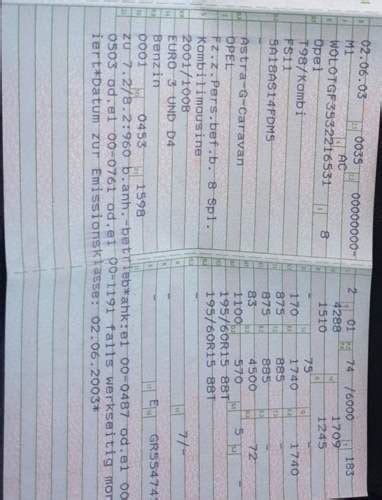 02.06.03 0035 00000000-
M1 AC
W0L0TGF3532216531 8
Opel
T98/Kombi
FS11
5A18AS14FDM5
-
Astra-G-Caravan
OPEL
Fz.z.Pers.bef.b. 8 Spl.
Kombilimousine
-
2001/:008
EURO 3 UND D4
Benzin
0001 0453 1598
2 01 74 /6000 183
4288 1709
1510 1245
- 75 -
170 1740 1740
875 885 -
875 885 -
83 4500 72
1100 570 5 -
195/60R15 88T
195/60R15 88T
-
- 7/-
-
E GR55474
zu 7.2/8.2:960 b.anh.-betrieb*ahk:e1 00-0487 od.e1 00
0503 od.e1 00-0761 od.e1 00-1191 falls werkseitig mon
iert*Datum zur Emissionsklasse: 02.06.2003*